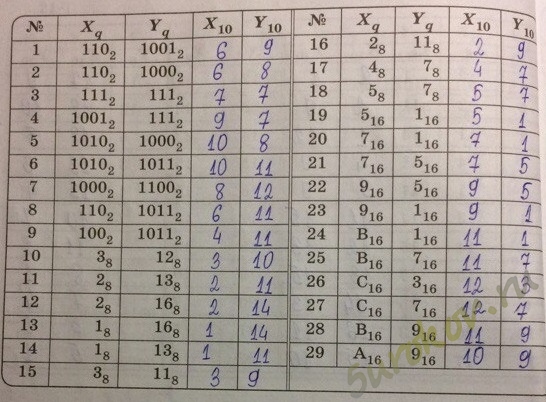 № X_q Y_q X₁₀ Y₁₀ № X_q Y_q X₁₀ Y₁₀
1 110₂ 1001₂ 6 9 16 2₈ 11₈ 2 9
2 110₂ 1000₂ 6 8 17 4₈ 7₈ 4 7
3 111₂ 111₂ 7 7 18 5₈ 7₈ 5 7
4 1001₂ 111₂ 9 7 19 5₁₆ 1₁₆ 5 1
5 1010₂ 1000₂ 10 8 20 7₁₆ 1₁₆ 7 1
6 1010₂ 1011₂ 10 11 21 7₁₆ 5₁₆ 7 5
7 1000₂ 1100₂ 8 12 22 9₁₆ 5₁₆ 9 5
8 110₂ 1011₂ 6 11 23 9₁₆ 1₁₆ 9 1
9 100₂ 1011₂ 4 11 24 B₁₆ 1₁₆ 11 1
10 3₈ 12₈ 3 10 25 B₁₆ 7₁₆ 11 7
11 2₈ 13₈ 2 11 26 C₁₆ 3₁₆ 12 3
12 2₈ 16₈ 2 14 27 C₁₆ 7₁₆ 12 7
13 1₈ 16₈ 1 14 28 B₁₆ 9₁₆ 11 9
14 1₈ 13₈ 1 11 29 A₁₆ 9₁₆ 10 9
15 3₈ 11₈ 3 9